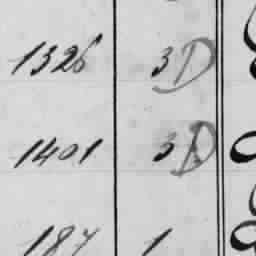 1326 3 D
1401 3 D
187 1